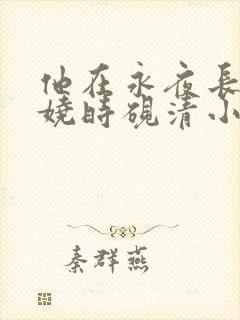 他在永夜長
嬈時硯清小
秦群燕